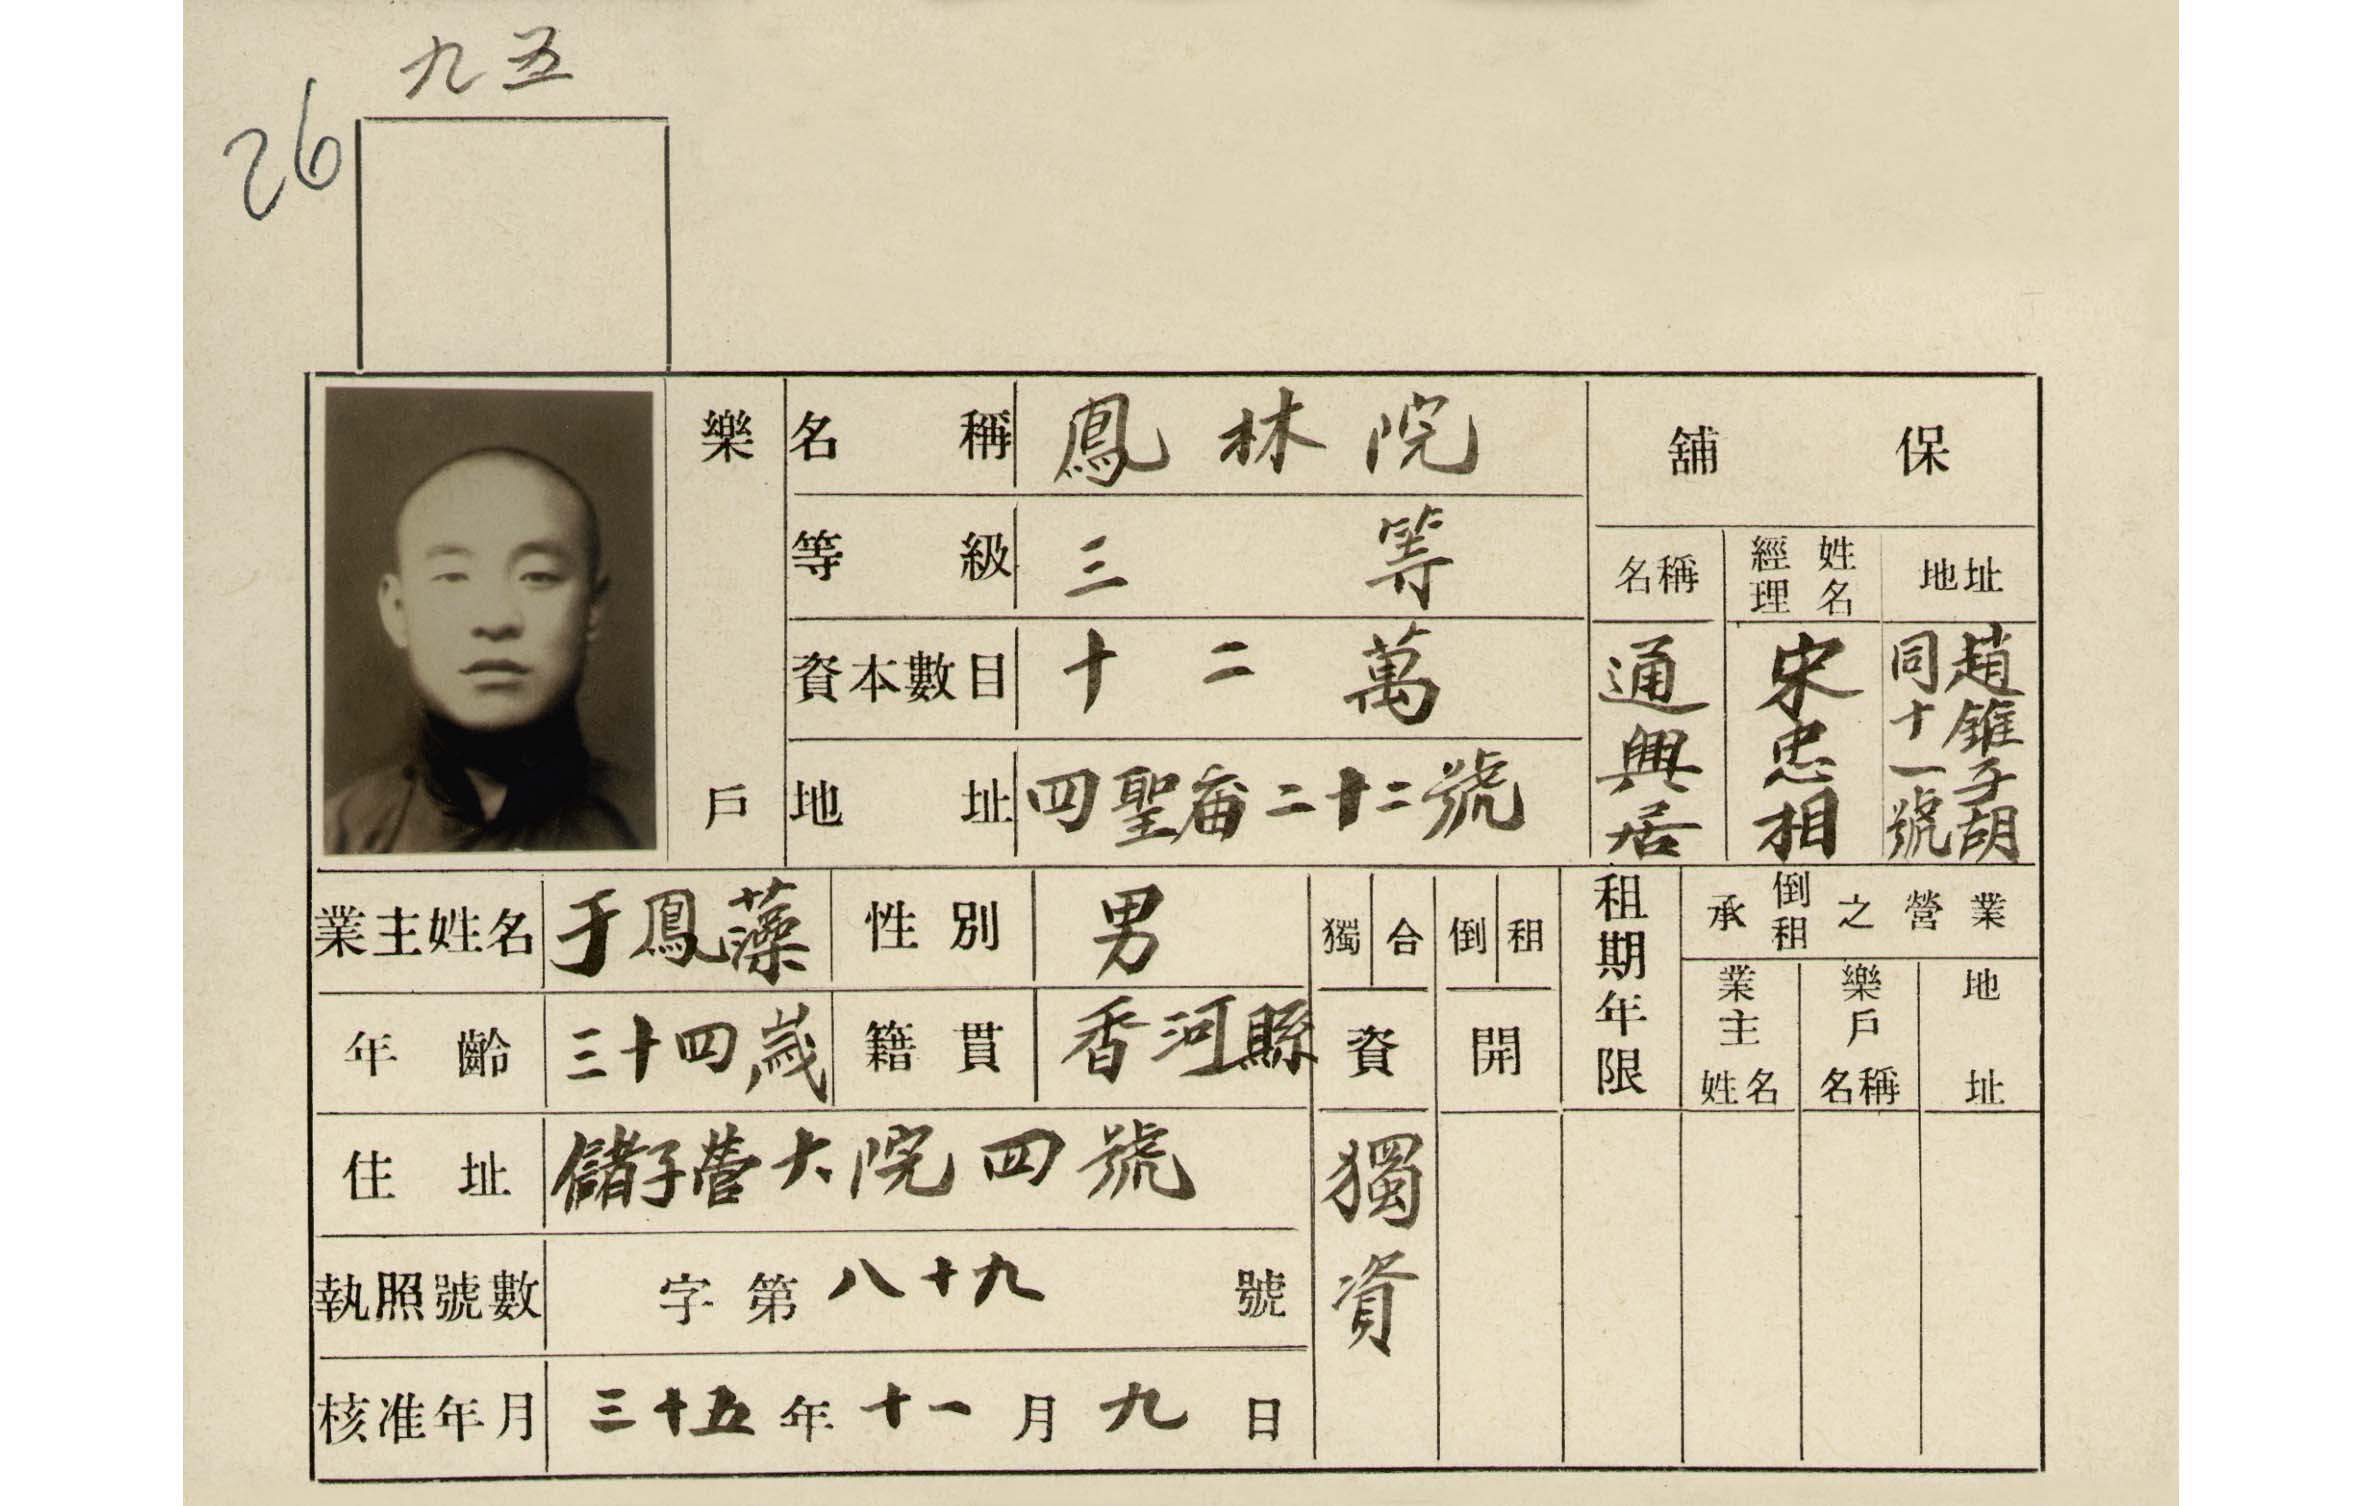 九五
26
樂戶
名稱 鳳林院
等級 三等
資本數目 十二萬
地址 四聖庙二十二號
舖保
名稱 通興居
經理姓名 宋忠相
地址 趙錐子胡同十一號
業主姓名 于鳳藻 性別 男
年齡 三十四歲 籍貫 香河縣
住址 儲子營大院四號
執照號數 字第八十九號
核准年月 三十五年十一月九日
獨合資 獨資
倒租開
租期年限
承倒租之營業
業主姓名
樂戶名稱
地址